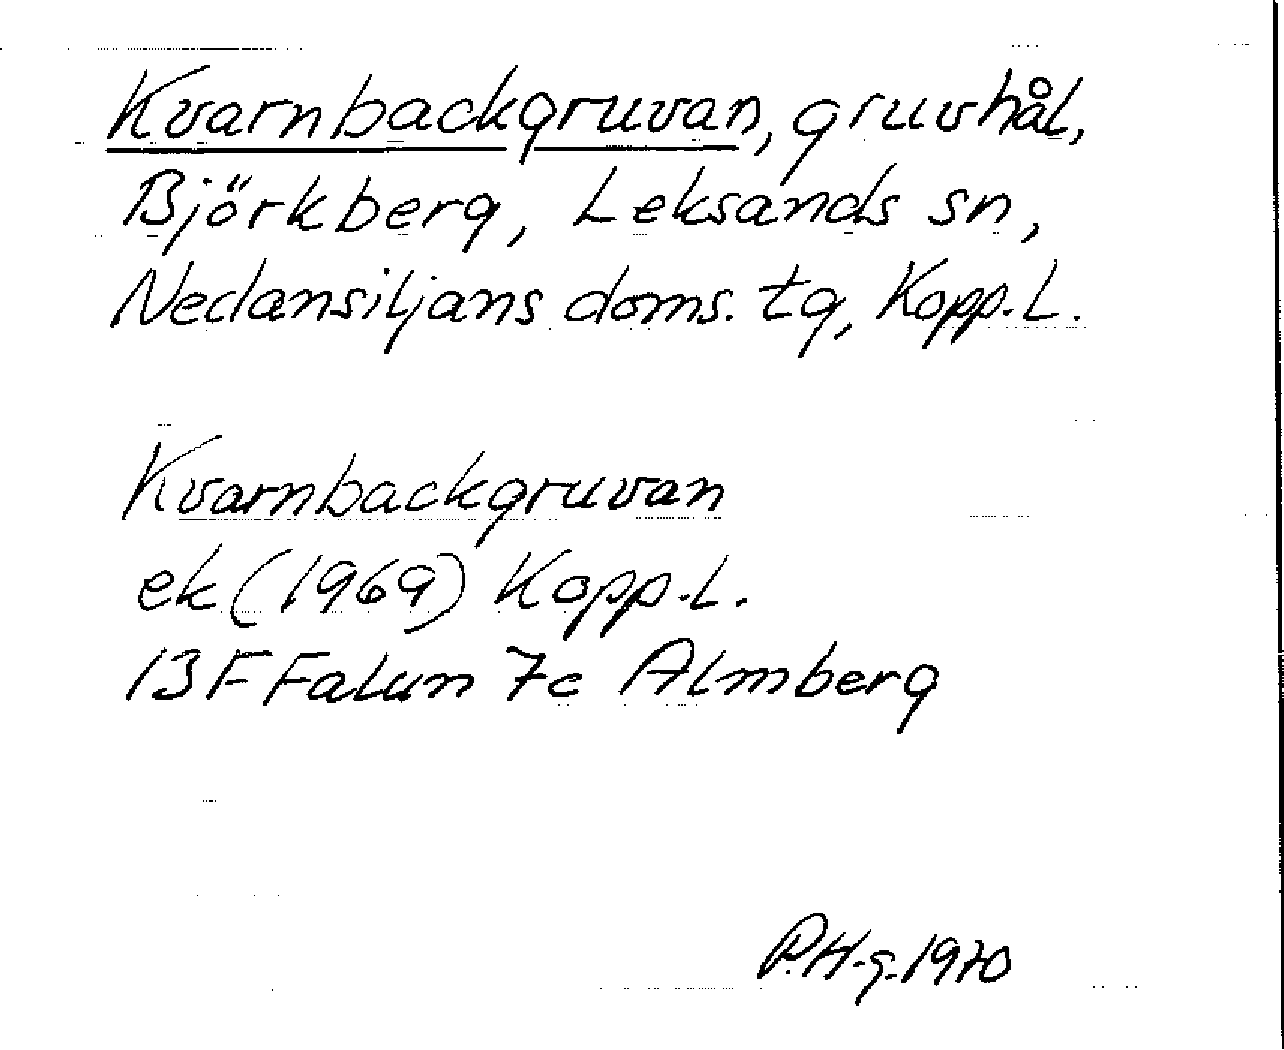 Kvarnbackgruvan, gruvhål,
Björkberg, Leksands sn,
Nedansiljans doms. tg, Kopp. L.
Kvarnbackgruvan
ek (1969) Kopp. L.
13F Falun 7c Almberg
P.H-g. 1970